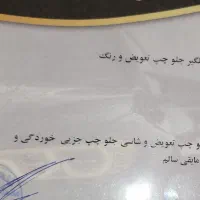 گلگیر جلو چپ تعویض و رنگ
جلو چپ تعویض و شاسی جلو چپ جزیی خوردگی و
مابقی سالم